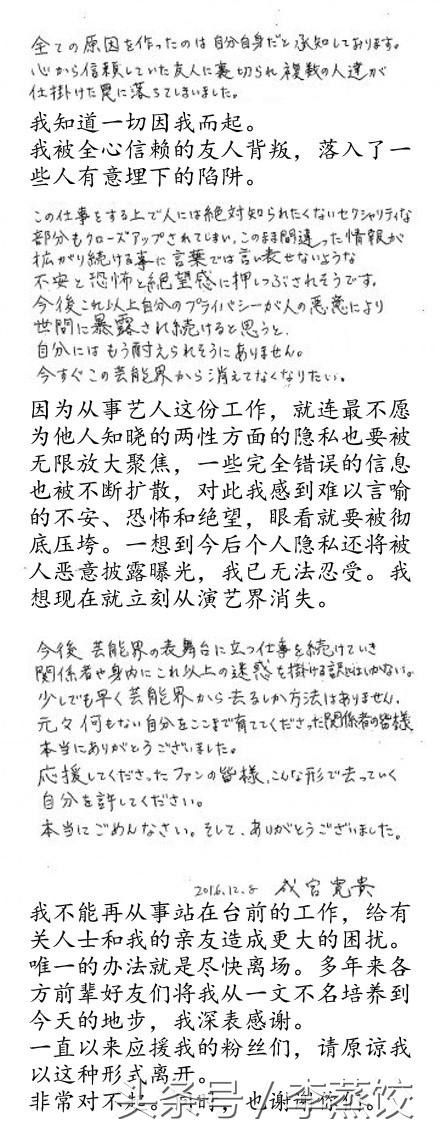 全ての原因を作ったのは自分自身だと承知しております。
心から信頼していた友人に裏切られ複数の人達が
仕掛けた罠に落ちてしまいました。
我知道一切因我而起。
我被全心信赖的友人背叛，落入了一
些人有意埋下的陷阱。
この仕事をする上で人には絶対知られたくないセクシャリティな
部分もクローズアップされてしまい、このまま間違った情報が
拡がり続ける事に言葉では言い表せないような
不安と恐怖と絶望感に押しつぶされそうです。
今後これ以上自分のプライバシーが人の悪意により
世間に暴露され続けると思うと、
自分にはもう耐えられそうにありません。
今すぐこの芸能界から消えてなくなりたい。
因为从事艺人这份工作，就连最不愿
为他人知晓的两性方面的隐私也要被
无限放大聚焦，一些完全错误的信息
也被不断扩散，对此我感到难以言喻
的不安、恐怖和绝望，眼看就要被彻
底压垮。一想到今后个人隐私还将被
人恶意披露曝光，我已无法忍受。我
想现在就立刻从演艺界消失。
今後芸能界の表舞台に立つ仕事を続けていき
関係者や身内にこれ以上の迷惑を掛ける訳にはいかない。
少しでも早く芸能界から去るしか方法はありません。
元々何もない自分をここまで育ててくださった関係者の皆様
本当にありがとうございました。
応援してくださったファンの皆様、こんな形で去っていく
自分を許してください。
本当にごめんなさい。そして、ありがとうございました。
2016.12.8 成宮寛貴
我不能再从事站在台前的工作，给有
关人士和我的亲友造成更大的困扰。
唯一的办法就是尽快离场。多年来各
方前辈好友们将我从一文不名培养到
今天的地步，我深表感谢。
一直以来应援我的粉丝们，请原谅我
以这种形式离开。
非常对不起。同时，也谢谢你们。
头条号/李蒸饺